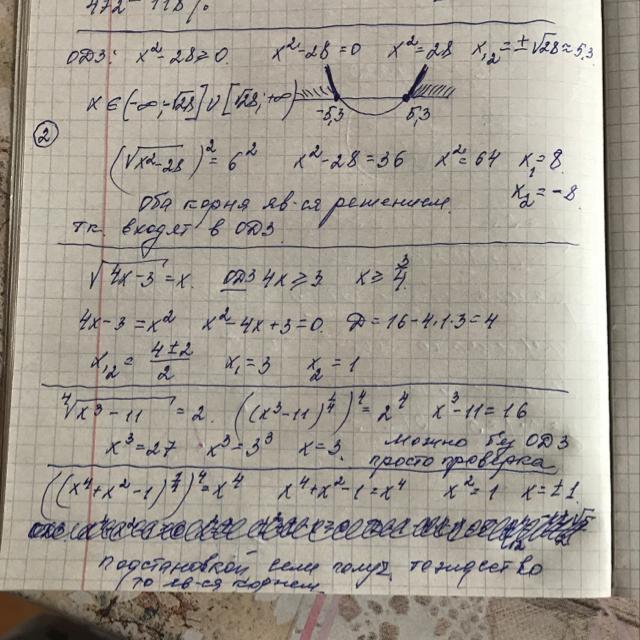 472 - 118%
ОДЗ: x²-28≥0. x²-28=0 x²=28 x₁,₂=±√28≈5,3.
x∈(-∞;-√28]∪[√28;+∞) -5,3 5,3
②
(√x²-28)²=6² x²-28=36 x²=64 x₁=8.
x₂=-8
Оба корня яв-ся решением.
т.к. входят в ОДЗ
√4x-3=x. ОДЗ 4x≥3 x≥3/4.
4x-3=x² x²-4x+3=0. D=16-4·1·3=4
x₁,₂=(4±2)/2 x₁=3 x₂=1
⁴√x³-11=2. ((x³-11)^¼)⁴=2⁴ x³-11=16
x³=27 x³=3³ x=3. Можно без ОДЗ
просто проверка
((x⁴+x²-1)^¼)⁴=x⁴ x⁴+x²-1=x⁴ x²=1 x=±1.
подстановкой если получ. тождество
то яв-ся корнем.